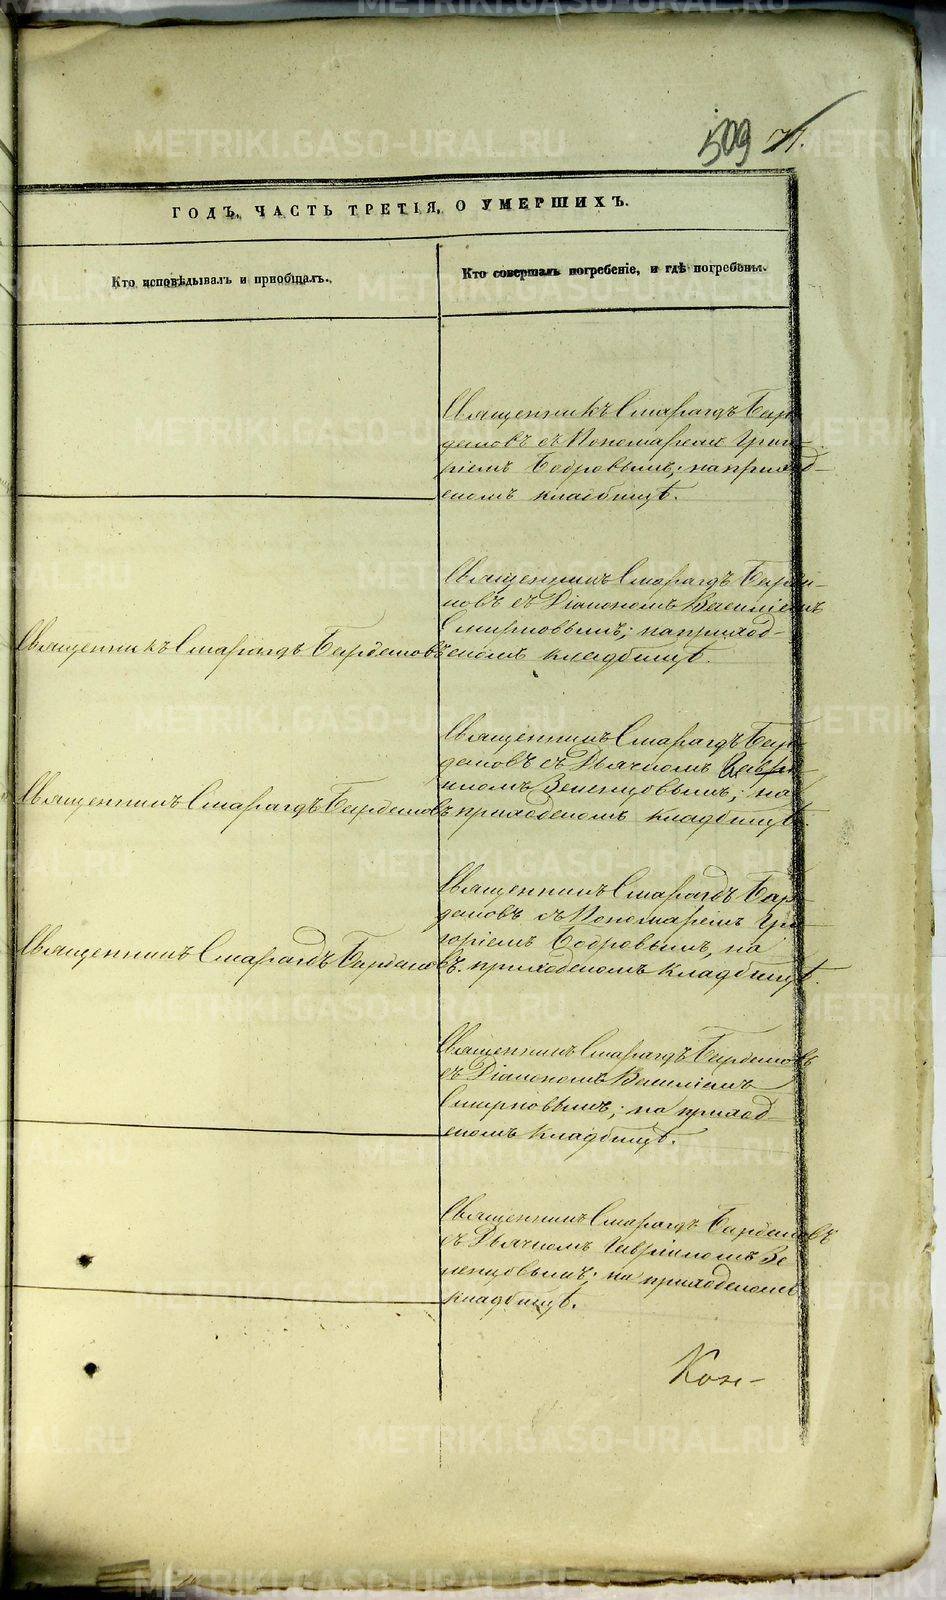 509 71.
ГОДЪ, ЧАСТЬ ТРЕТІЯ, О УМЕРШИХЪ.
Кто исповѣдывалъ и пріобщалъ.
Кто совершалъ погребеніе, и гдѣ погребены.
Священникъ Смарагдъ Бар-
дамовъ съ Пономаремъ Григо-
ріемъ Бобровымъ; на приход-
скомъ кладбищѣ.
Священникъ Смарагдъ Бардамовъ
Священникъ Смарагдъ Барда-
мовъ съ Діакономъ Василіемъ
Смирновымъ; на приход-
скомъ кладбищѣ.
Священникъ Смарагдъ Бардамовъ
Священникъ Смарагдъ Бар-
дамовъ съ Дьячкомъ Гаврі-
иломъ Веженцовымъ; на
приходскомъ кладбищѣ.
Священникъ Смарагдъ Бардамовъ.
Священникъ Смарагдъ Бар-
дамовъ съ Пономаремъ Гри-
горіемъ Бобровымъ, на
приходскомъ кладбищѣ.
Священникъ Смарагдъ Бардамовъ
съ Діакономъ Василіемъ
Смирновымъ; на приход
скомъ кладбищѣ.
Священникъ Смарагдъ Бардамовъ
съ Дьячкомъ Гавріиломъ
на приходскомъ
кладбищѣ.
METRIKI.GASO-URAL.RU